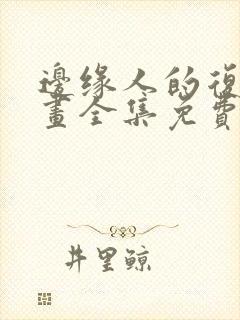 邊缘人的復
畫全集免費
井里鲸